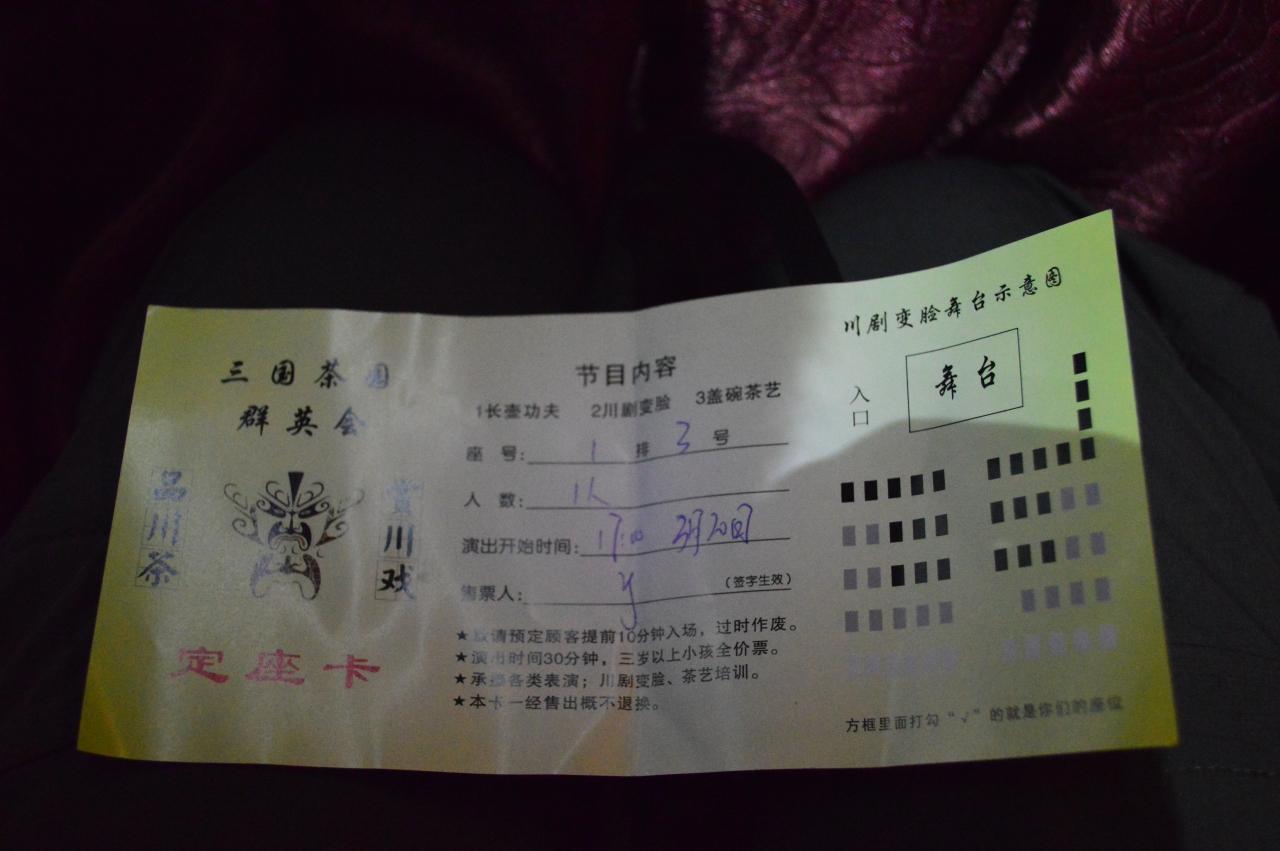 三国茶园
群英会
品川茶
赏川戏
定座卡
节目内容
1长壶功夫 2川剧变脸 3盖碗茶艺
座 号: 1 排 3 号
人 数: 1人
演出开始时间: 17:00
售票人: (签字生效)
★敬请预定顾客提前10分钟入场，过时作废。
★演出时间30分钟，三岁以上小孩全价票。
★承接各类表演；川剧变脸、茶艺培训。
★本卡一经售出概不退换。
川剧变脸舞台示意图
入口
舞台
方框里面打勾“√”的就是你们的座位